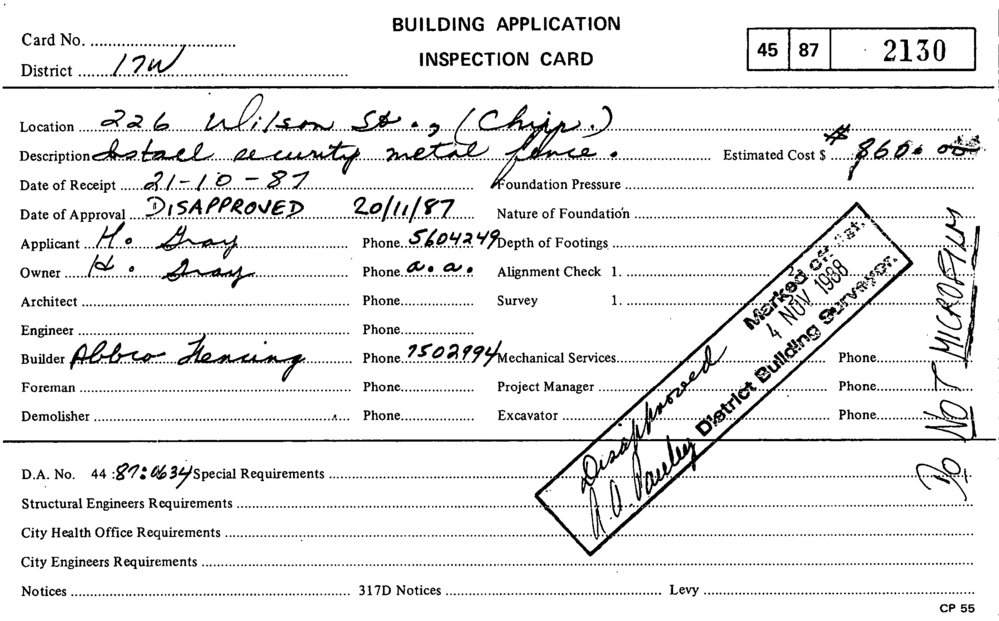 BUILDING APPLICATION
INSPECTION CARD
Card No.
District 17W
45 87 2130
Location 226 Wilson St., (Chipp.)
Description Install security metal fence. Estimated Cost $ $860.00
Date of Receipt 21-10-87 Foundation Pressure
Date of Approval DISAPPROVED 20/11/87 Nature of Foundation
Applicant H. Gray Phone. 5604249 Depth of Footings
Owner H. Gray Phone. a.a. Alignment Check 1. 2.
Architect Phone Survey 1.
Engineer Phone
Builder Abbco Fencing Phone. 7502994 Mechanical Services Phone
Foreman Phone Project Manager Phone
Demolisher Phone Excavator Phone
D.A. No. 44 :87:0634 Special Requirements
Structural Engineers Requirements
City Health Office Requirements
City Engineers Requirements
Notices 317D Notices Levy
CP 55
Marked off
4 NOV 1988
Disapproved
District Building Surveyor.
DO NOT MICROFILM